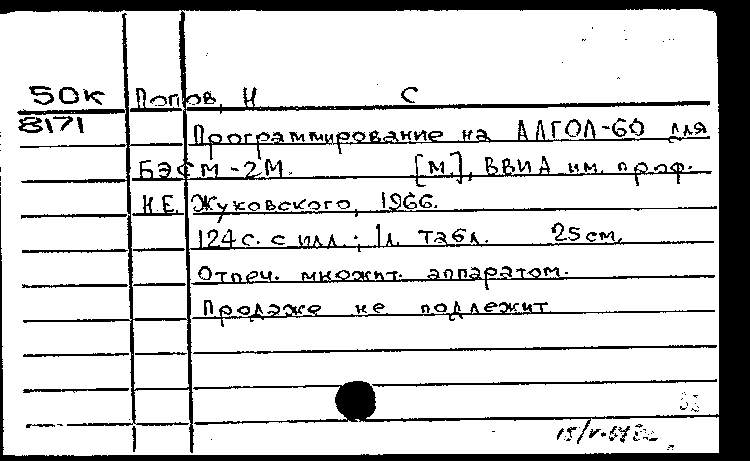 50к Попов, Н С
8171 Программирование на АЛГОЛ-60 для
БЭСМ-2М. [М.], ВВИА им. проф.
Н.Е. Жуковского, 1966.
124 с. с илл.; 1 л. табл. 25 см.
Отпеч. множит. аппаратом.
Продаже не подлежит